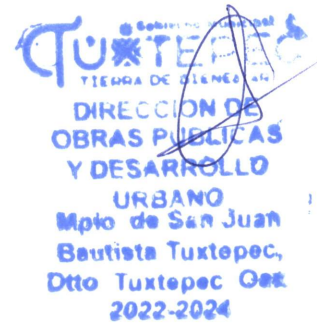 Gobierno Municipal
TUXTEPEC
TIERRA DE BIENESTAR
DIRECCION DE
OBRAS PUBLICAS
Y DESARROLLO
URBANO
Mpio de San Juan
Bautista Tuxtepec,
Dtto Tuxtepec Oax
2022-2024